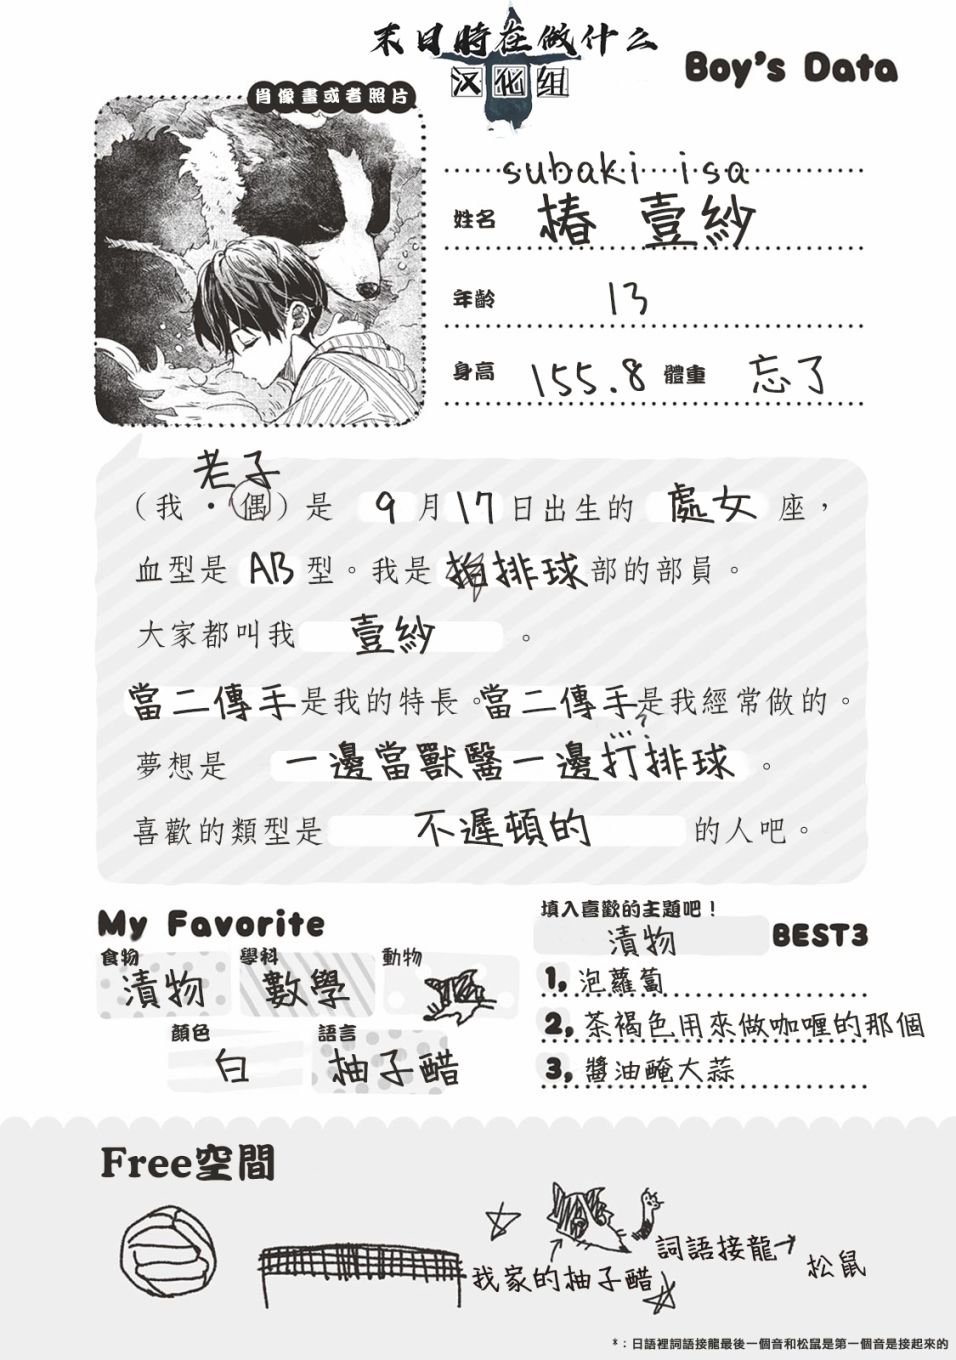 末日時在做什么
汉化组
Boy's Data
肖像畫或者照片
subaki isa
姓名 椿 壹紗
年齡 13
身高 155.8 體重 忘了
老子
（我・偶）是 9月17日出生的 處女 座，
血型是 AB 型。我是 排球部的部員。
大家都叫我 壹紗 。
當二傳手是我的特長。當二傳手是我經常做的。
夢想是 一邊當獸醫一邊打排球 。
喜歡的類型是 不遲頓的 的人吧。
My Favorite
食物 漬物
學科 數學
動物
顏色 白
語言 柚子醋
填入喜歡的主題吧！
漬物 BEST3
1, 泡蘿蔔
2, 茶褐色用來做咖喱的那個
3, 醬油醃大蒜
Free空間
我家的柚子醋
詞語接龍→
松鼠
*：日語裡詞語接龍最後一個音和松鼠是第一個音是接起來的